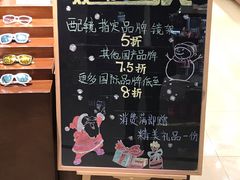 配镜指定品牌镜架
5折
其他国产品牌
7.5折
更多国际品牌低至
8折
消费满即赠
精美礼品一份